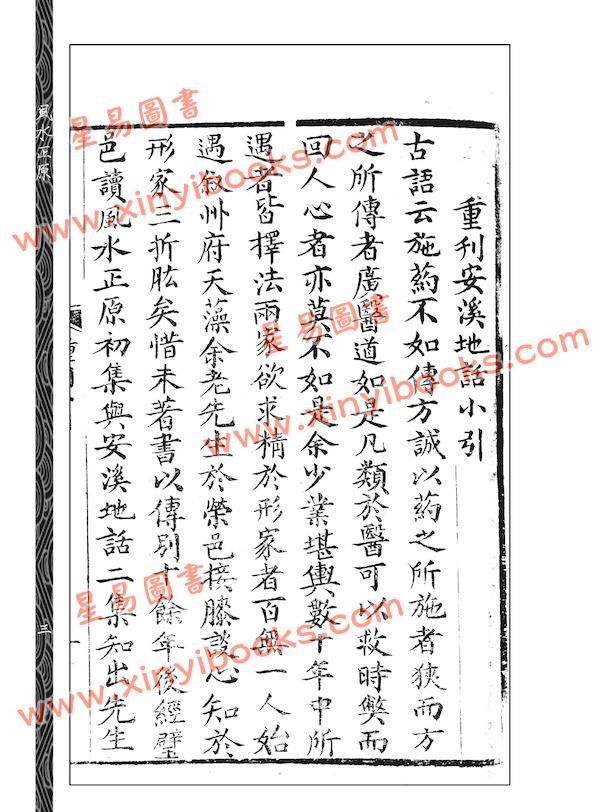 重刊安溪地話小引
古語云施葯不如傳方誠以葯之所施者狹而方
之所傳者廣醫道如是凡類於醫可以救時獘而
回人心者亦莫不如是余少業堪輿數十年中所
遇者皆擇法兩家欲求精於形家者百無一人始
遇叙州府天藻余老先生於榮邑接膝談心知於
形家三折肱矣惜未著書以傳別十餘年後經璧
邑讀風水正原初集與安溪地話二集知出先生
風水正原
三
星易圖書
www.xinyibooks.com
星易圖書
www.xinyibooks.com
星易圖書
www.xinyibooks.com